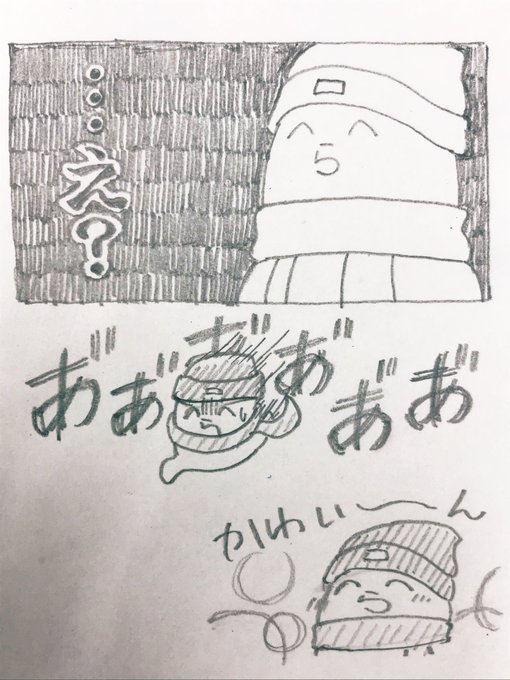 …え?
あ゛あ゛あ゛あ゛あ゛あ゛
かわい〜ん